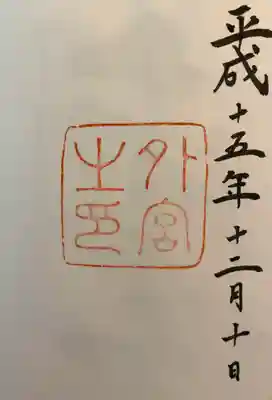 平成十五年十二月十日
外宮
之印